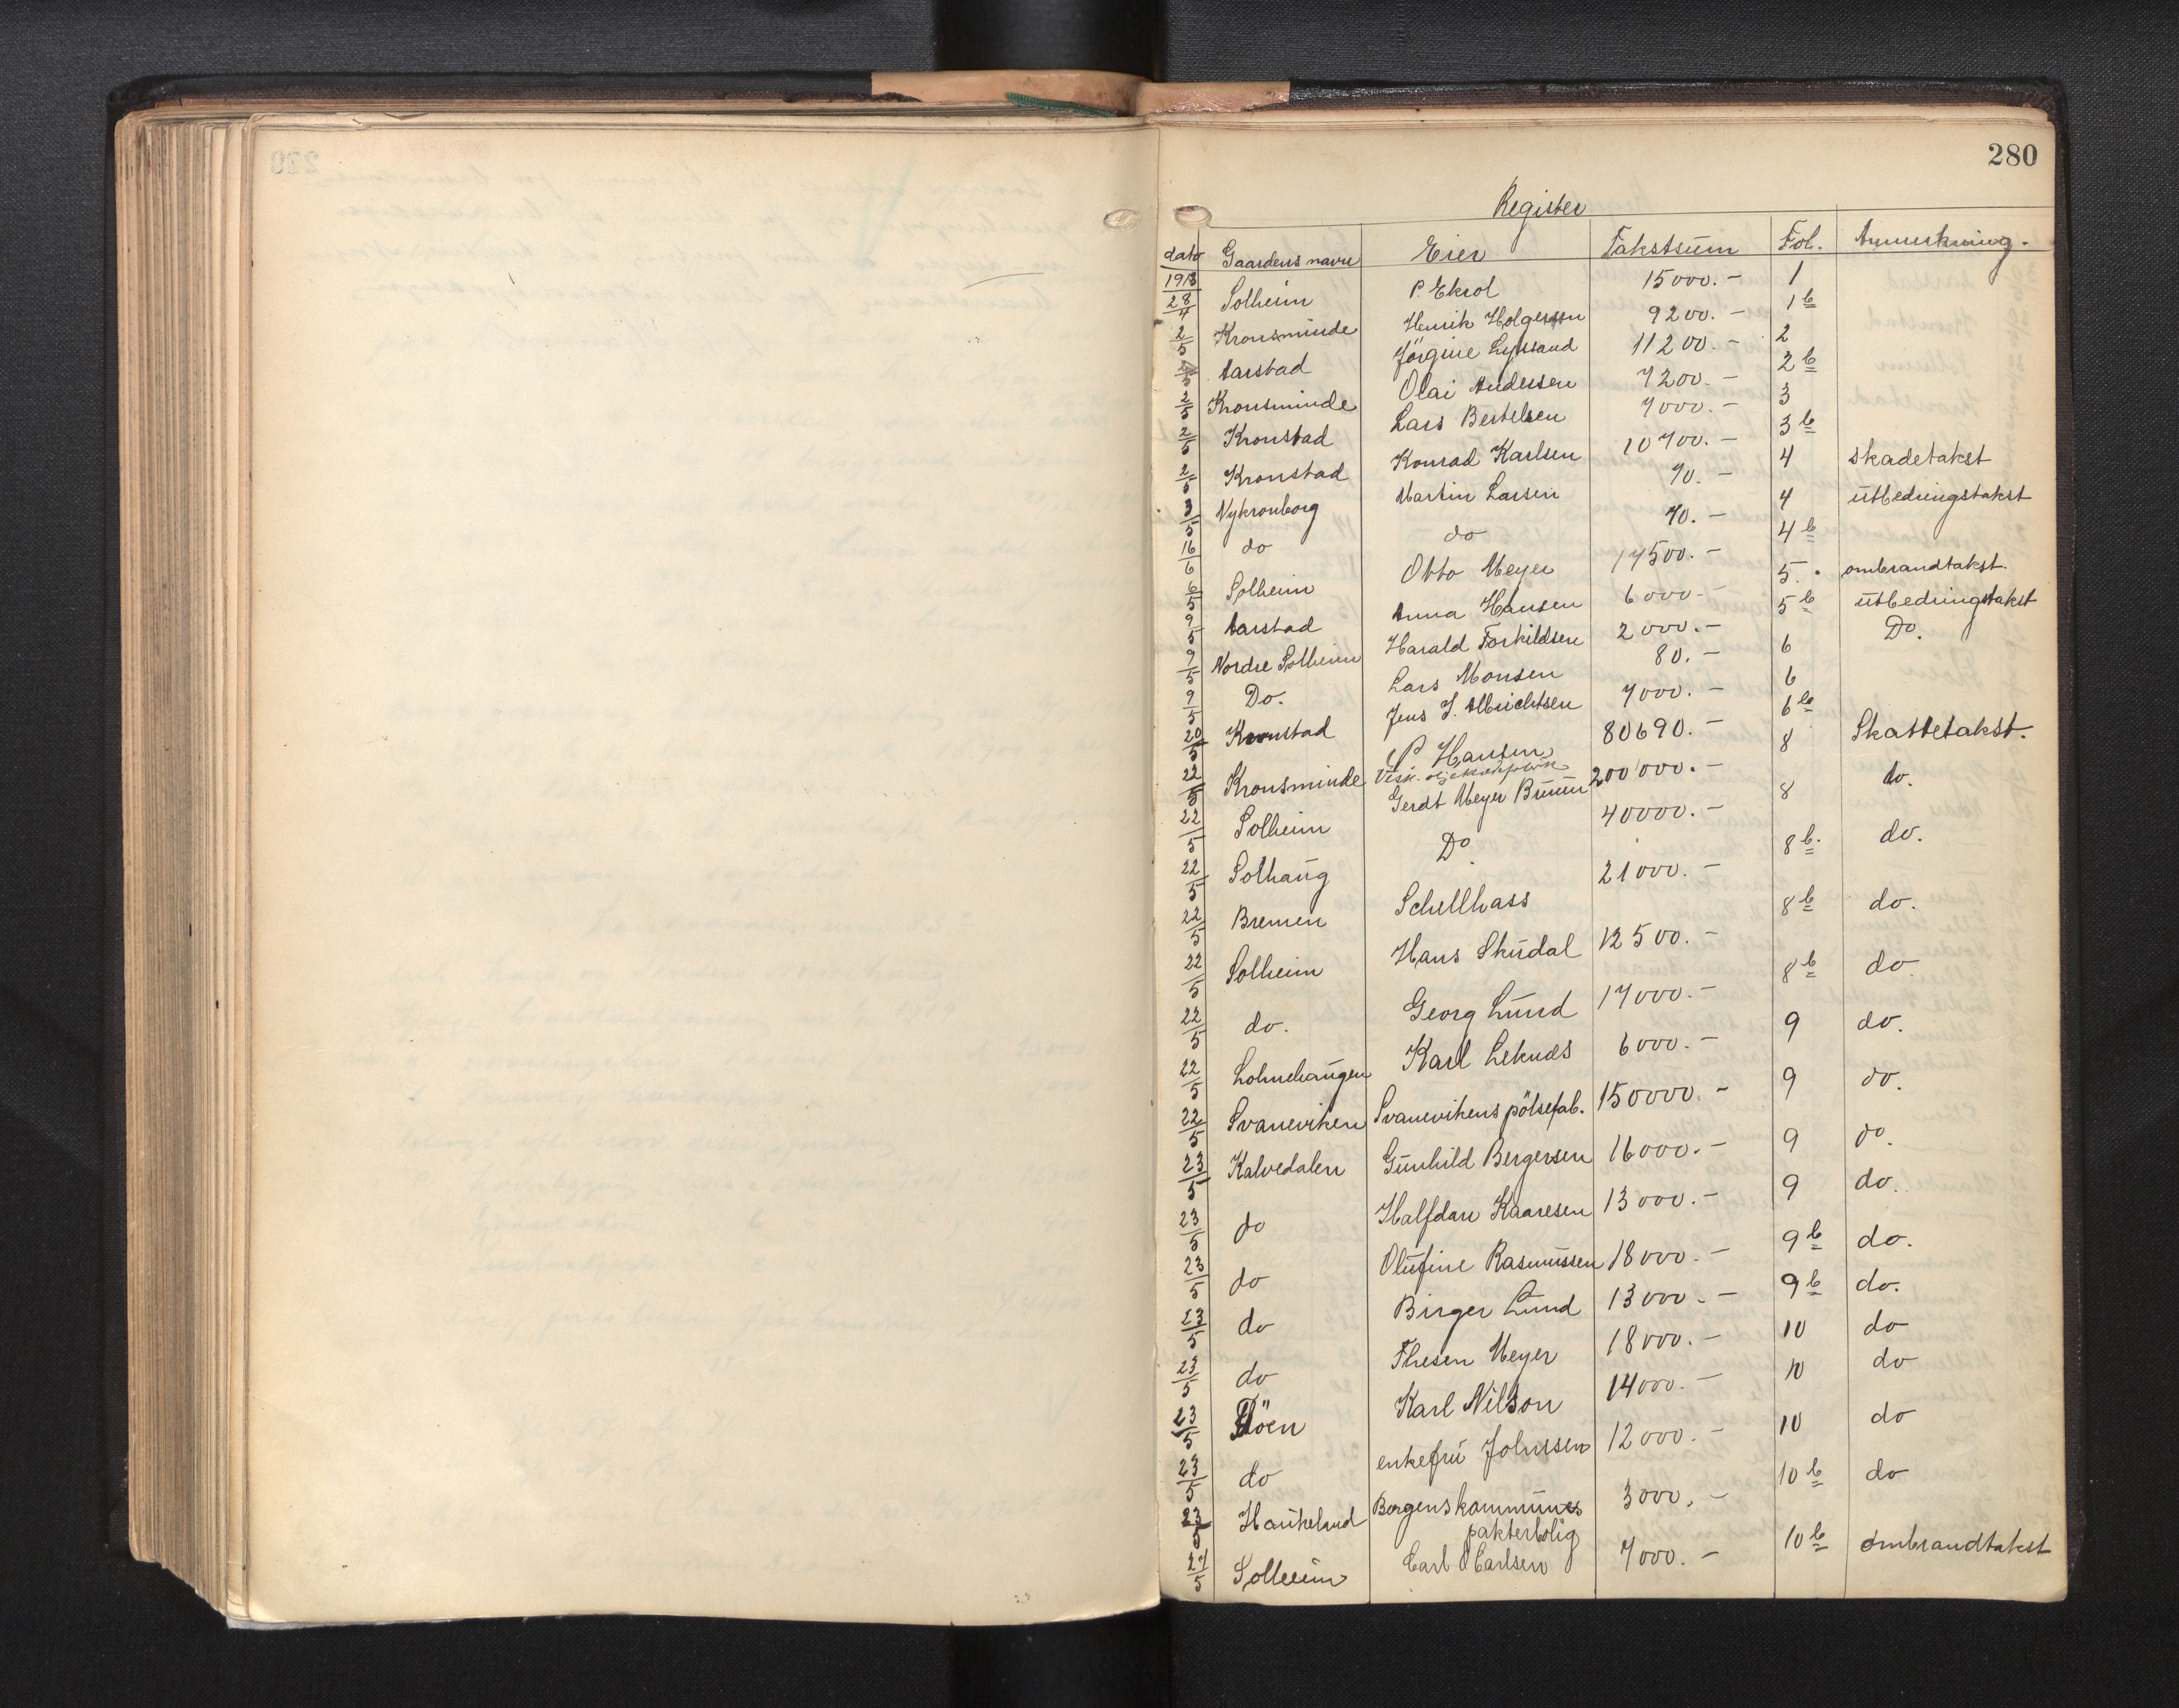 280
Register
dato Gaardens navn Eier Takstsum Fol. Anmerkning.
1913
28/4 Solheim P. Ekrol 15000.- 1
2/5 Kronsminde Henrik Holgersen 9200.- 1b
2/5 Aarstad Jörgine Lyssand 11200.- 2
2/5 Kronsminde Olai Andersen 7200.- 2b
2/5 Kronstad Lars Bertelsen 7000.- 3
2/5 Kronstad Konrad Karlsen 10700.- 3b
3/5 Nykronborg Martin Larsen 70.- 4 skadetakst
16/6 do do 70.- 4 utbedringstakst
6/5 Solheim Otto Meyer 17500.- 4b
9/5 Aarstad Anna Hansen 6000.- 5. ombrandtakst.
9/5 Nordre Solheim Harald Torkildsen 2000.- 5b utbedringstakst
9/5 Do. Lars Monsen 80.- 6 Do.
20/5 Kronstad Jens J. Albrichtsen 7000.- 6
22/5 Kronsminde P. Hansen 80690.- 6b
22/5 Solheim Gerdt Meyer Bruun 200000.- 8 Skattetakst.
22/5 Solhaug Do 40000.- 8 do.
22/5 Bremen Schellhass 21000.- 8b. do.
22/5 Solheim Hans Skudal 12500.- 8b do.
22/5 do. Georg Lund 17000.- 8b do.
22/5 Lohnehaugen Karl Leknes 6000.- 9 do.
22/5 Svaneviken Svanevikens pölsefab. 150000.- 9 do.
23/5 Kalvedalen Gunhild Bergersen 16000.- 9 do.
23/5 do Halfdan Kaaresen 13000.- 9 do.
23/5 do Olufine Rasmussen 18000.- 9b do.
23/5 do Birger Lund 13000.- 9b do.
23/5 do Thesen Meyer 18000.- 10 do
23/5 Flöen Karl Nilson 14000.- 10 do
23/5 do enkefru Johnsen 12000.- 10 do
23/5 Haukeland Bergens kommunes
pakterbolig 3000.- 10b do
27/5 Solheim Carl O Carlsen 7000.- 10b ombrandtakst